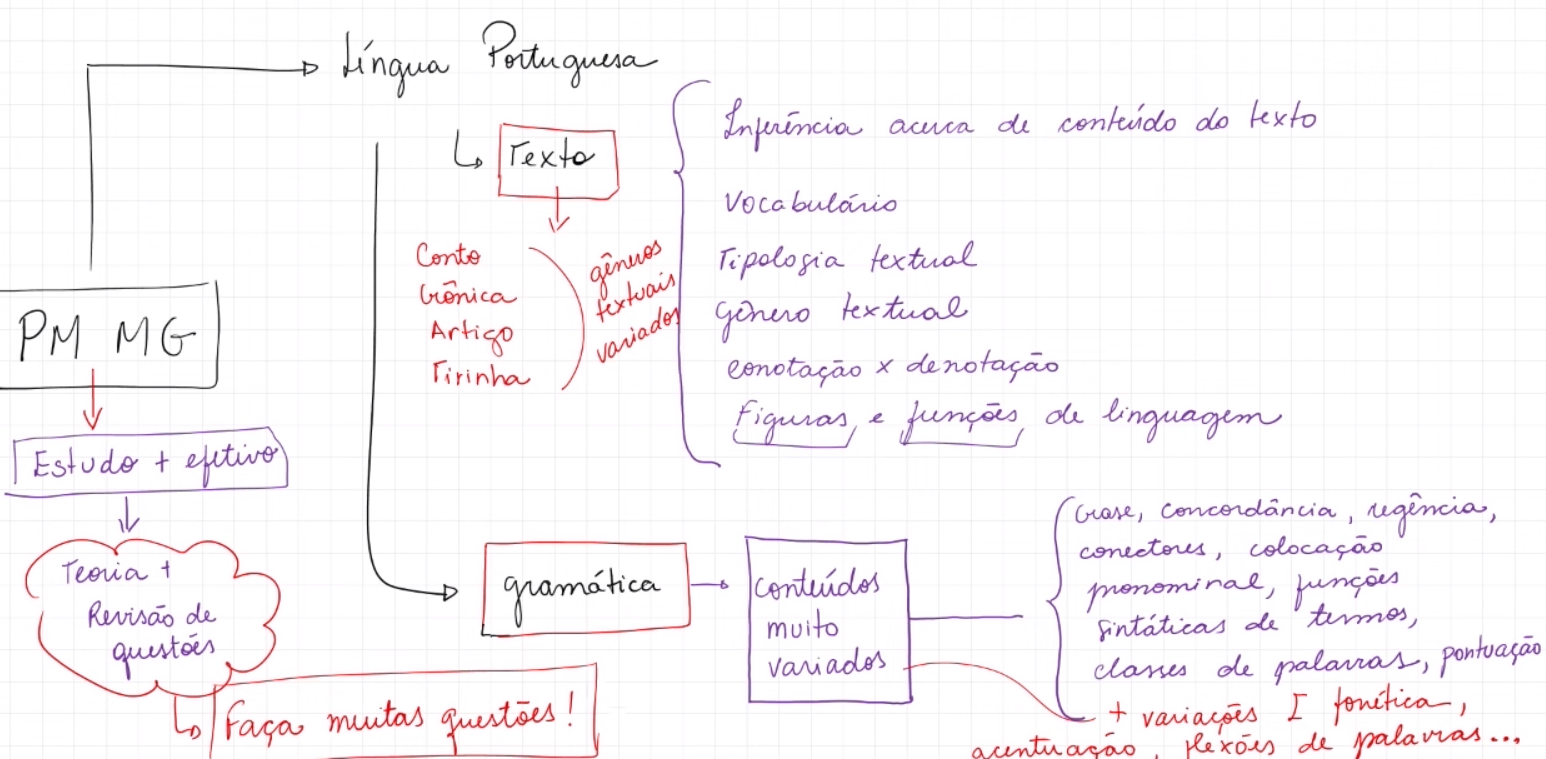 Língua Portuguesa
Texto
Conto
Crônica
Artigo
Tirinha
gêneros
textuais
variados
Inferência acerca de conteúdo do texto
Vocabulário
Tipologia textual
Gênero textual
conotação x denotação
Figuras e funções de linguagem
PM MG
Estudo + efetivo
Teoria +
Revisão de
questões
Faça muitas questões!
gramática
conteúdos
muito
variados
Crase, concordância, regência,
conectores, colocação
pronominal, funções
sintáticas de termos,
classes de palavras, pontuação
+ variações I fonética,
acentuação, flexões de palavras...